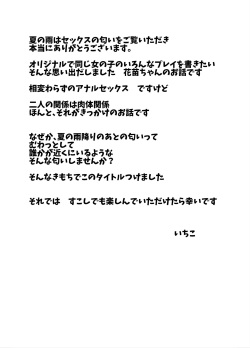 夏の雨はセックスの匂いをご覧いただき
本当にありがとうございます。
オリジナルで同じ女の子のいろんなプレイを書きたい
そんな思い出だしました　花苗ちゃんのお話です
相変わらずのアナルセックス　ですけど
二人の関係は肉体関係
ほんと、それがきっかけのお話です
なぜか、夏の雨降りのあとの匂いって
むわっとして
誰かが近くにいるような
そんな匂いしませんか？
そんなきもちでこのタイトルつけました
それでは　すこしでも楽しんでいただけたら幸いです
いちこ